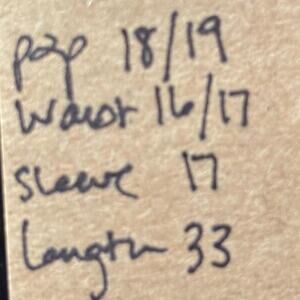 p2p 18/19
Waist 16/17
Sleeve 17
Length 33